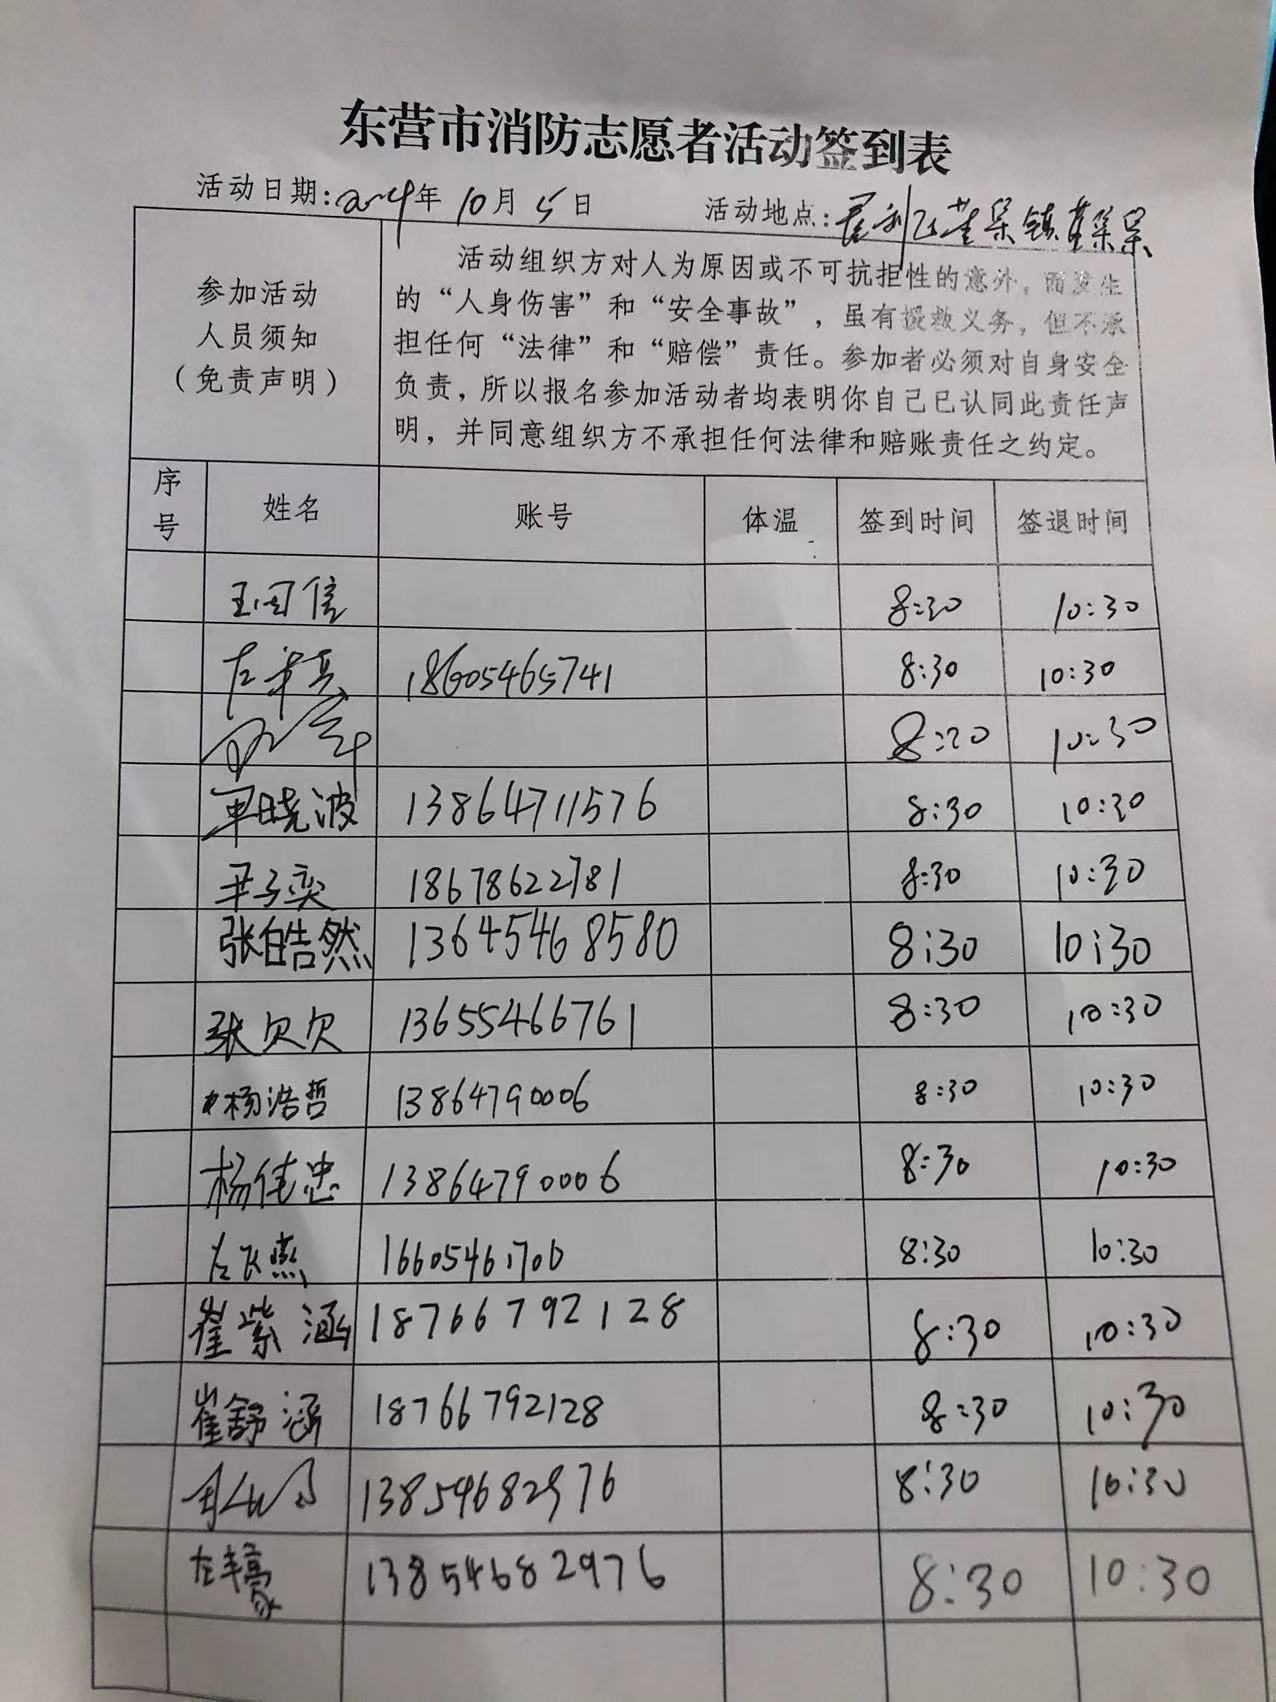 东营市消防志愿者活动签到表
活动日期:2024年 10月 5日 活动地点:垦利区董集镇董集
参加活动
人员须知
(免责声明)
活动组织方对人为原因或不可抗拒性的意外,而发生
的“人身伤害”和“安全事故”,虽有援救义务,但不承
担任何“法律”和“赔偿”责任。参加者必须对自身安全
负责,所以报名参加活动者均表明你自己已认同此责任声
明,并同意组织方不承担任何法律和赔账责任之约定。
序号 姓名 账号 体温 签到时间 签退时间
王国信 8:30 10:30
18605465741 8:30 10:30
8:30 10:30
单晓波 13864711576 8:30 10:30
18678622781 8:30 10:30
张皓然 13645468580 8:30 10:30
张欠欠 13655466761 8:30 10:30
杨浩哲 13864790006 8:30 10:30
杨佳忠 13864790006 8:30 10:30
左飞燕 16605461706 8:30 10:30
崔紫涵 18766792128 8:30 10:30
崔舒涵 18766792128 8:30 10:30
13854682976 8:30 10:30
左丰豪 13854682976 8:30 10:30